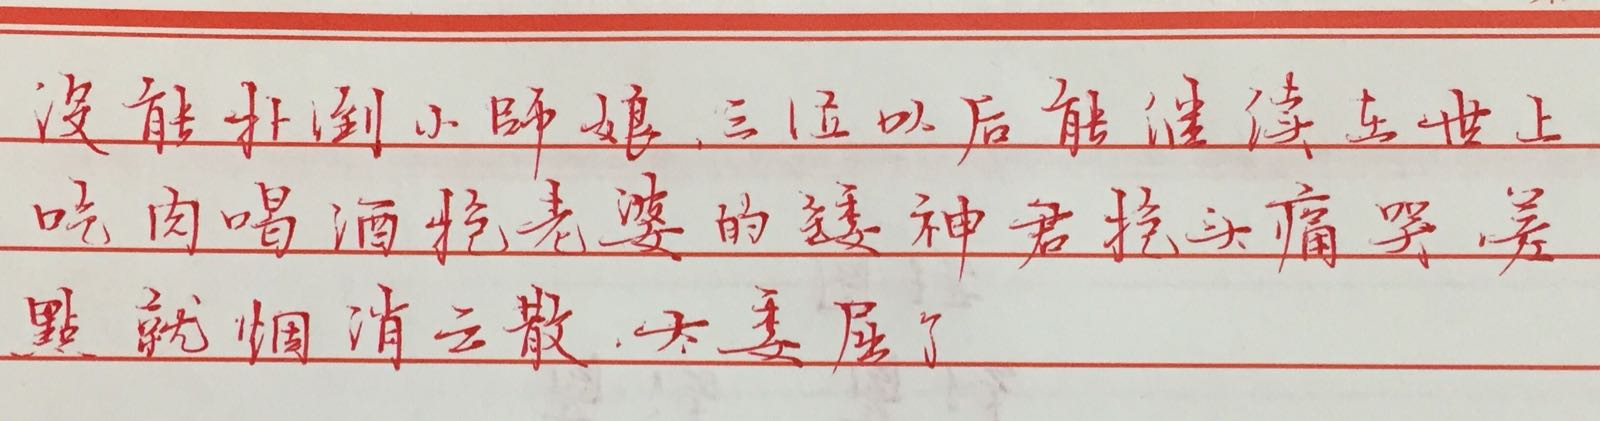 没能扑倒小師娘,三位以后能继续在世上
吃肉喝酒抱老婆的矮神君抱头痛哭,差
點就烟消云散,太委屈了